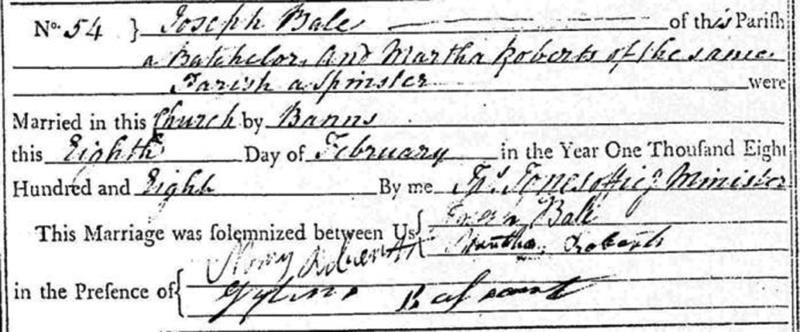 No. 54 } Joseph Bale of this Parish
a Batchelor, and Martha Roberts of the same
Parish a Spinster were
Married in this Church by Banns
this Eighth Day of February in the Year One Thousand Eight
Hundred and Eight By me Thos. Jones offic.g Minister
This Marriage was solemnized between Us { Bale
Martha Roberts
in the Presence of { Roberts